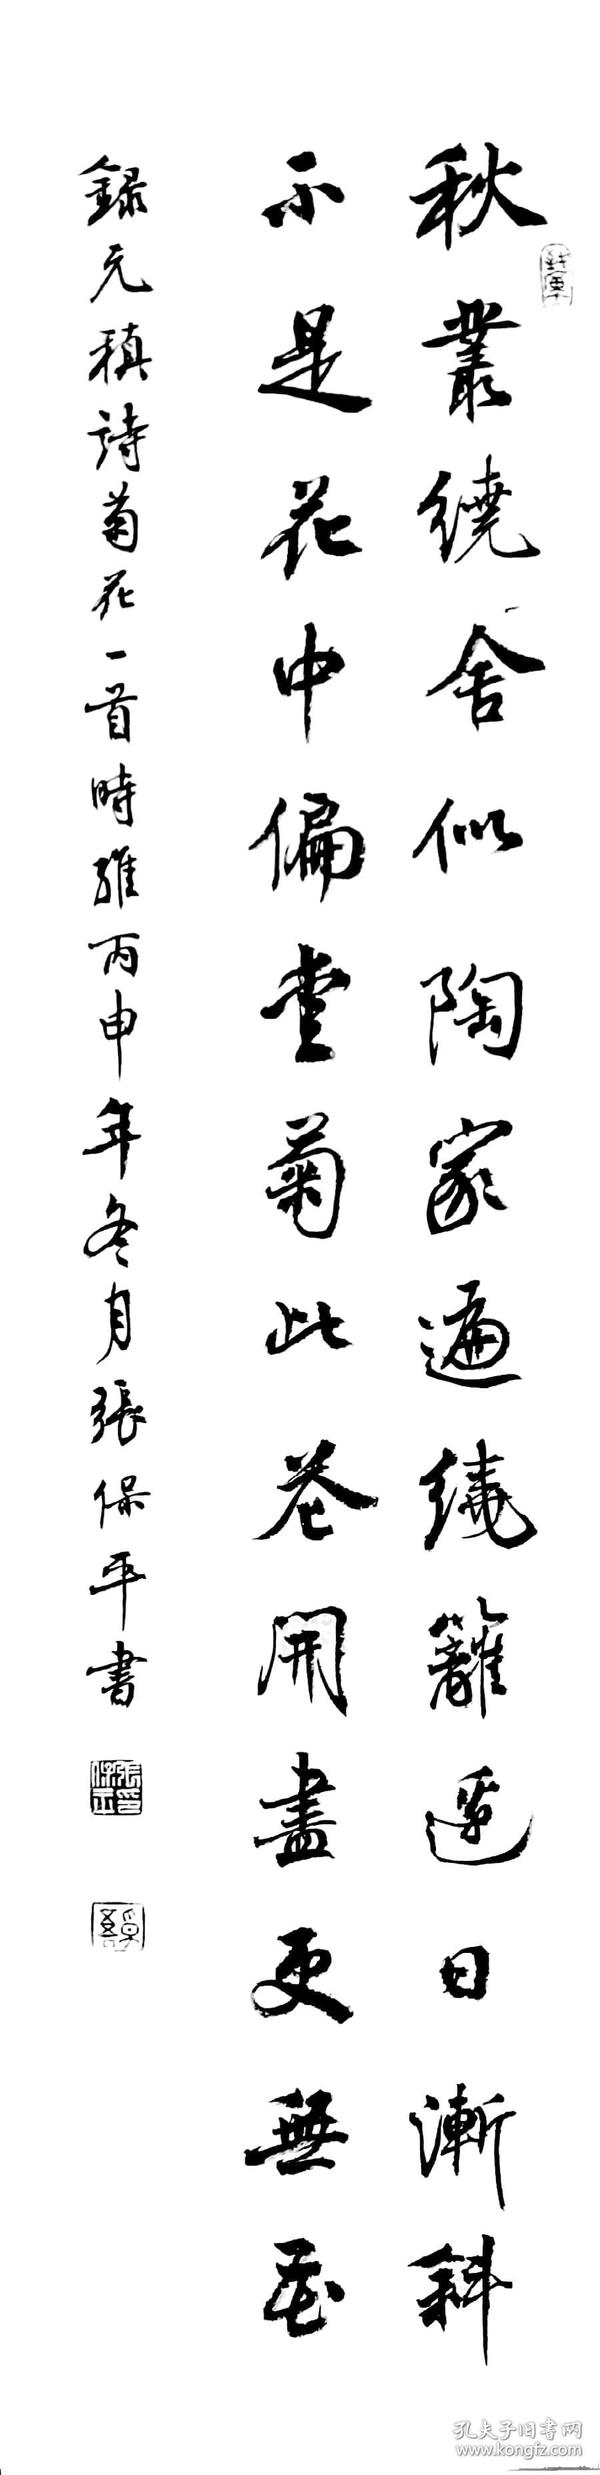 秋叢繞舍似陶家遍繞籬邊日漸斜
不是花中偏愛菊此花開盡更無花
錄元稹詩菊花一首時維丙申年冬月張保平書
張保平印
孔夫子旧書网
www.kongfz.com